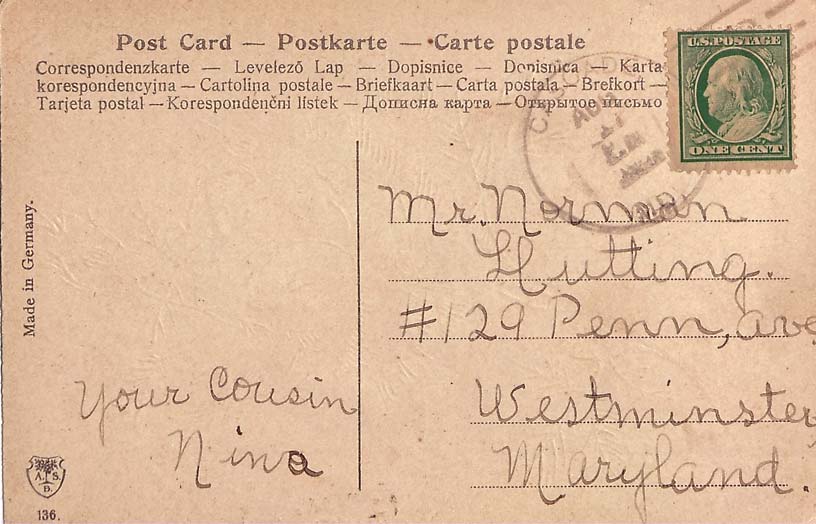 Post Card — Postkarte — Carte postale
Correspondenzkarte — Levelező Lap — Dopisnice — Dopisnica — Karta
korespondencyjna — Cartolina postale — Briefkaart — Carta postala — Brefkort —
Tarjeta postal — Korespondenčni listek — Дописна карта — Открытое письмо
U.S.POSTAGE
ONE CENT
AUG
Made in Germany.
Mr. Norman
Hutting.
#129 Penn, ave
Westminster
Maryland.
Your Cousin
Nina
A. S.
B.
136.